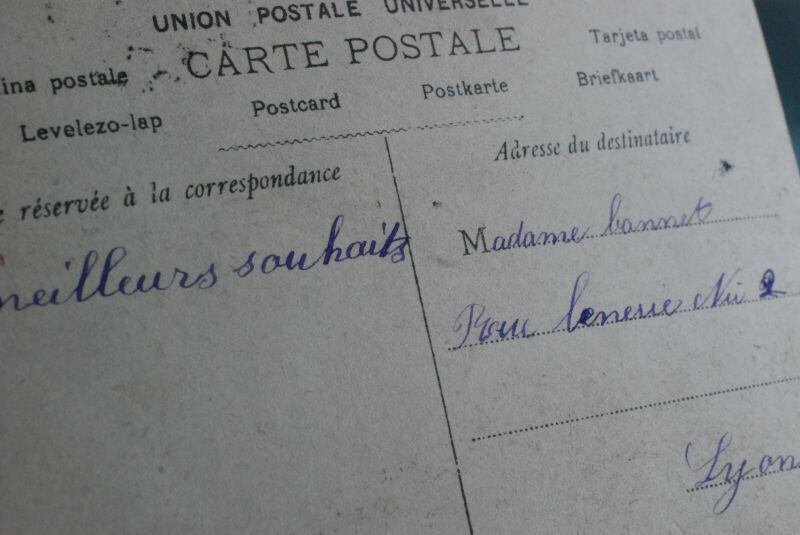 UNION POSTALE UNIVERSELLE
CARTE POSTALE
ina postale
Tarjeta postal
Levelezo-lap
Postcard
Postkarte
Briefkaart
e réservée à la correspondance
meilleurs souhaits
Adresse du destinataire
Madame bannet
No 2
Lyon